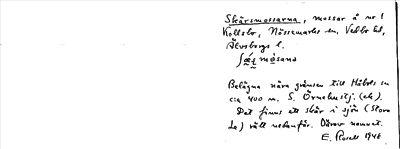 Skärsmossarna, mossar å nr 1
Kollsbo, Nössemarks sn, Vedbo hd,
Älvsborgs l.
mòsana
Belägna nära gränsen till Håbols sn
ca 400 m. S. Örnekustj. (ek).
Det finns ett skär i sjön (Stora
Le) rätt nedanför. Därav namnet.
E. Rosell 1946